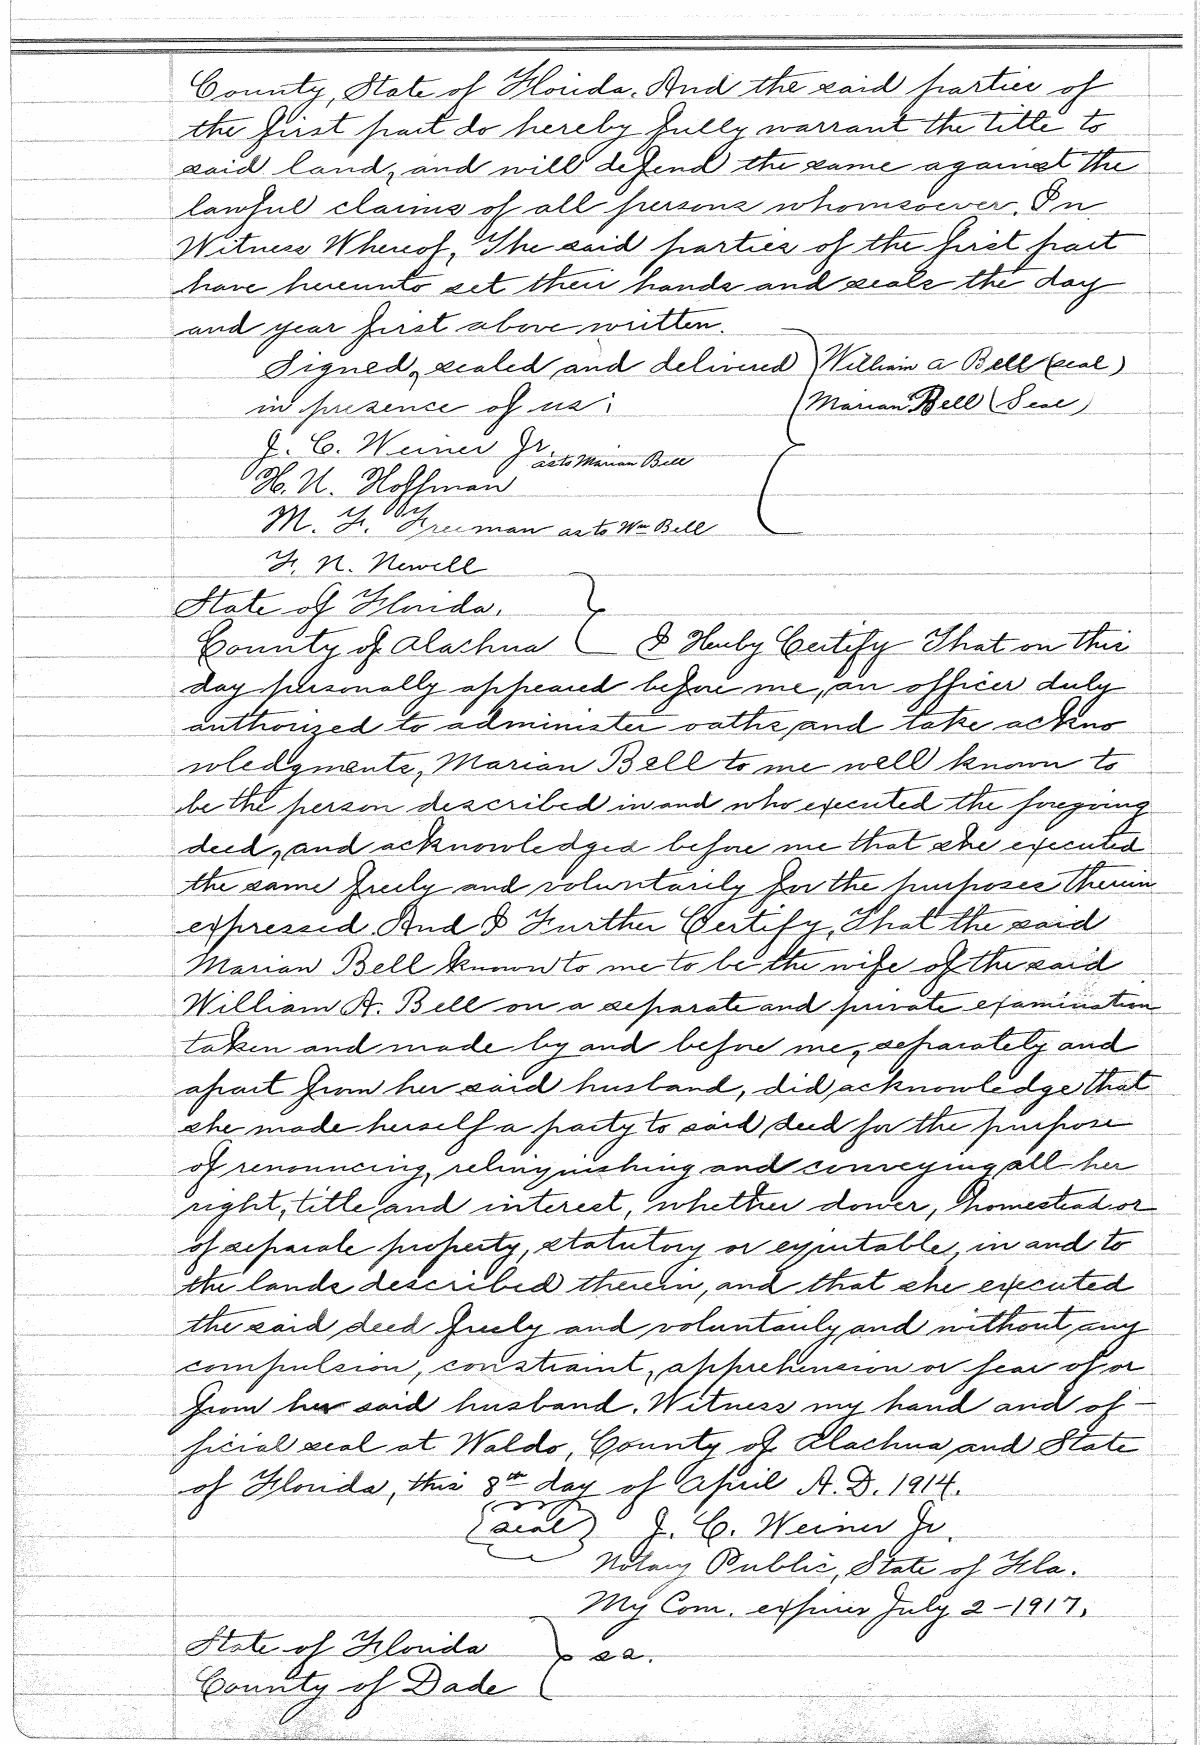 County, State of Florida. And the said parties of
the first part do hereby fully warrant the title to
said land, and will defend the same against the
lawful claims of all persons whomsoever. In
Witness Whereof, The said parties of the first part
have hereunto set their hands and seals the day
and year first above written.
Signed, sealed and delivered William A Bell (seal)
in presence of us: Marian Bell (Seal)
J. C. Weiner Jr. as to Marian Bell
H. U. Hoffman
M. F. Freeman as to Wm Bell
F. N. Newell
State of Florida.
County of Alachua I Hereby Certify That on this
day personally appeared before me, an officer duly
authorized to administer oaths, and take ackno
wledgments, Marian Bell to me well known to
be the person described in and who executed the foregoing
deed, and acknowledged before me that she executed
the same freely and voluntarily for the purposes therein
expressed. And I Further Certify, That the said
Marian Bell known to me to be the wife of the said
William A. Bell on a separate and private examination
taken and made by and before me, separately and
apart from her said husband, did acknowledge that
she made herself a party to said deed for the purpose
of renouncing, relinquishing and conveying all her
right, title and interest, whether dower, homestead or
of separate property, statutory or equitable, in and to
the lands described therein, and that she executed
the said deed freely and voluntarily and without any
compulsion, constraint, apprehension or fear of or
from her said husband. Witness my hand and of-
ficial seal at Waldo, County of Alachua and State
of Florida, this 8th day of April A.D. 1914.
(seal) J. C. Weiner Jr.
Notary Public, State of Fla.
My Com. expires July 2-1917.
State of Florida
ss.
County of Dade